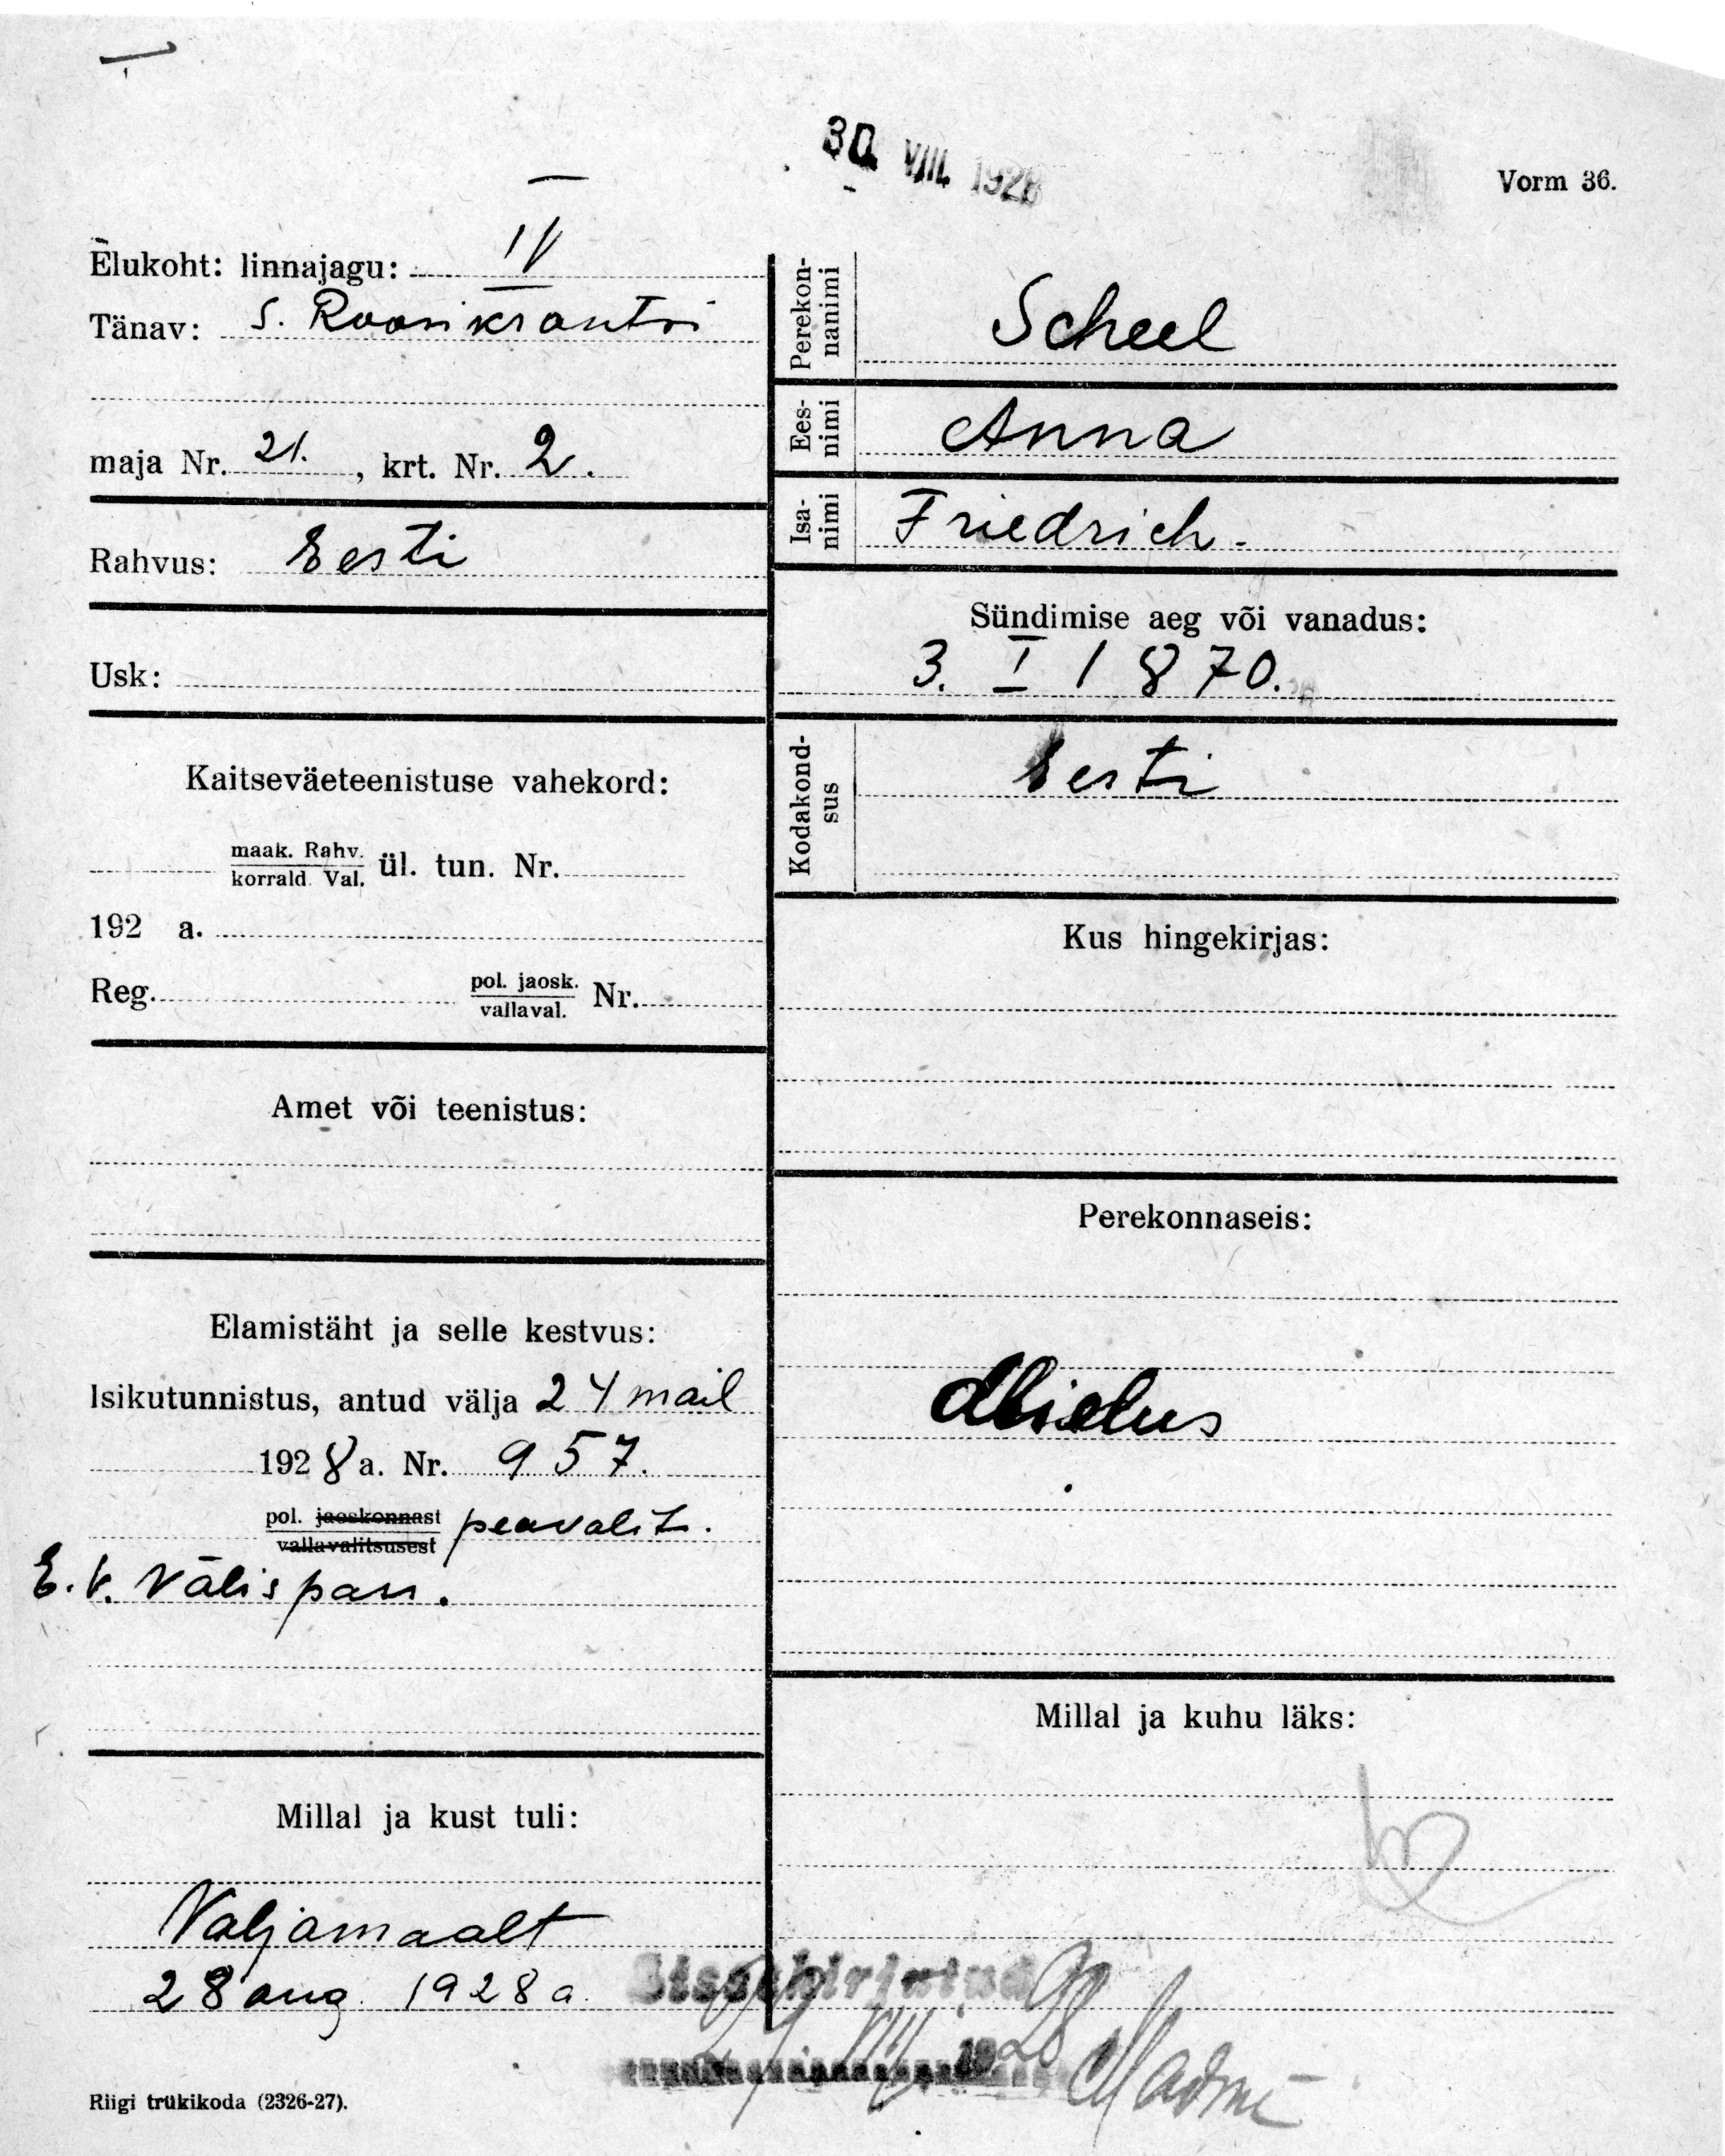 30. VIII. 1928
Vorm 36.
Elukoht: linnajagu: IV
Tänav: S. Roosikrantsi
maja Nr. 21., krt. Nr. 2.
Rahvus: Eesti
Usk:
Kaitseväeteenistuse vahekord:
maak. Rahv.
korrald. Val. ül. tun. Nr.
192 a.
Reg. pol. jaosk.
vallaval. Nr.
Amet või teenistus:
Elamistäht ja selle kestvus:
Isikutunnistus, antud välja 24 mail
1928 a. Nr. 957.
pol. jaoskonnast peavalit.
vallavalitsusest
E. V. Välispass.
Millal ja kust tuli:
Valjamaalt
28 aug. 1928 a.
Riigi trükikoda (2326-27).
Perekon-
nanimi Scheel
Ees-
nimi Anna
Isa-
nimi Friedrich.
Sündimise aeg või vanadus:
3. I 1870.
Kodakond-
sus Eesti
Kus hingekirjas:
Perekonnaseis:
Abielus
Millal ja kuhu läks:
Sissekirjutud
29 VIII 1928